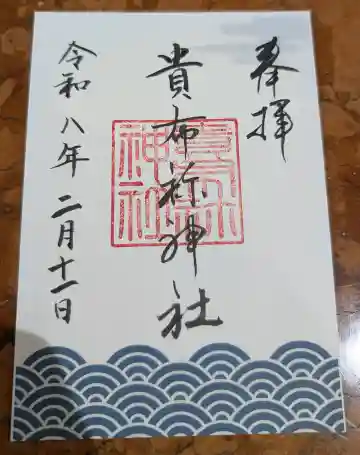 奉拝
貴布祢神社
令和八年二月十一日